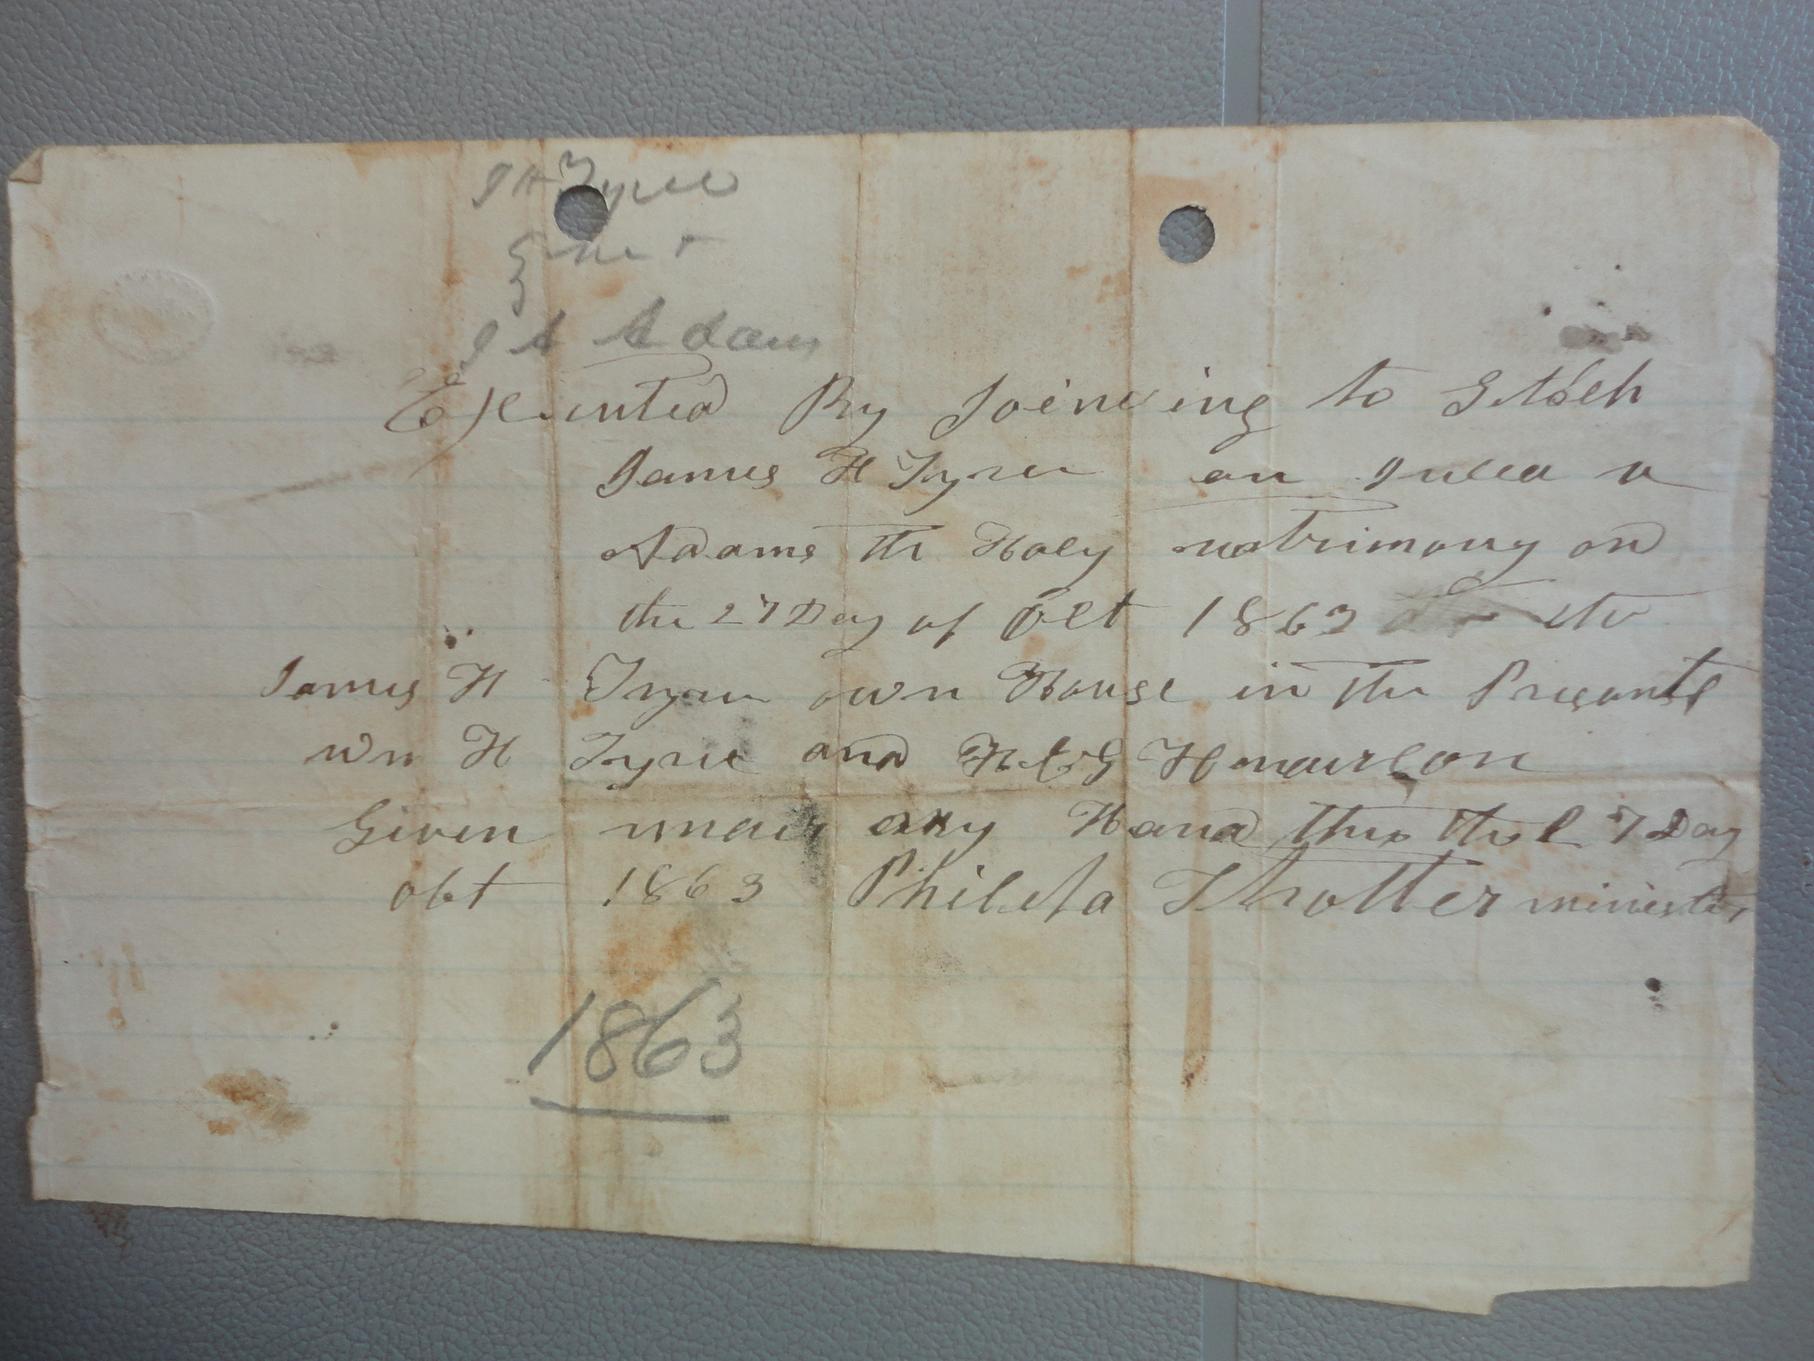 J H Tyree
&
J A Adams
Executed By Joineing to Gether
James H Tyree an Julia A
Adams the Holy matrimony on
the 27 Day of Oct 1863 the
James H Tyree own House in the Presants
wm H Tyree and
Given under my Hand this the 27 Day
Oct 1863 Phileta Trotter minister
1863